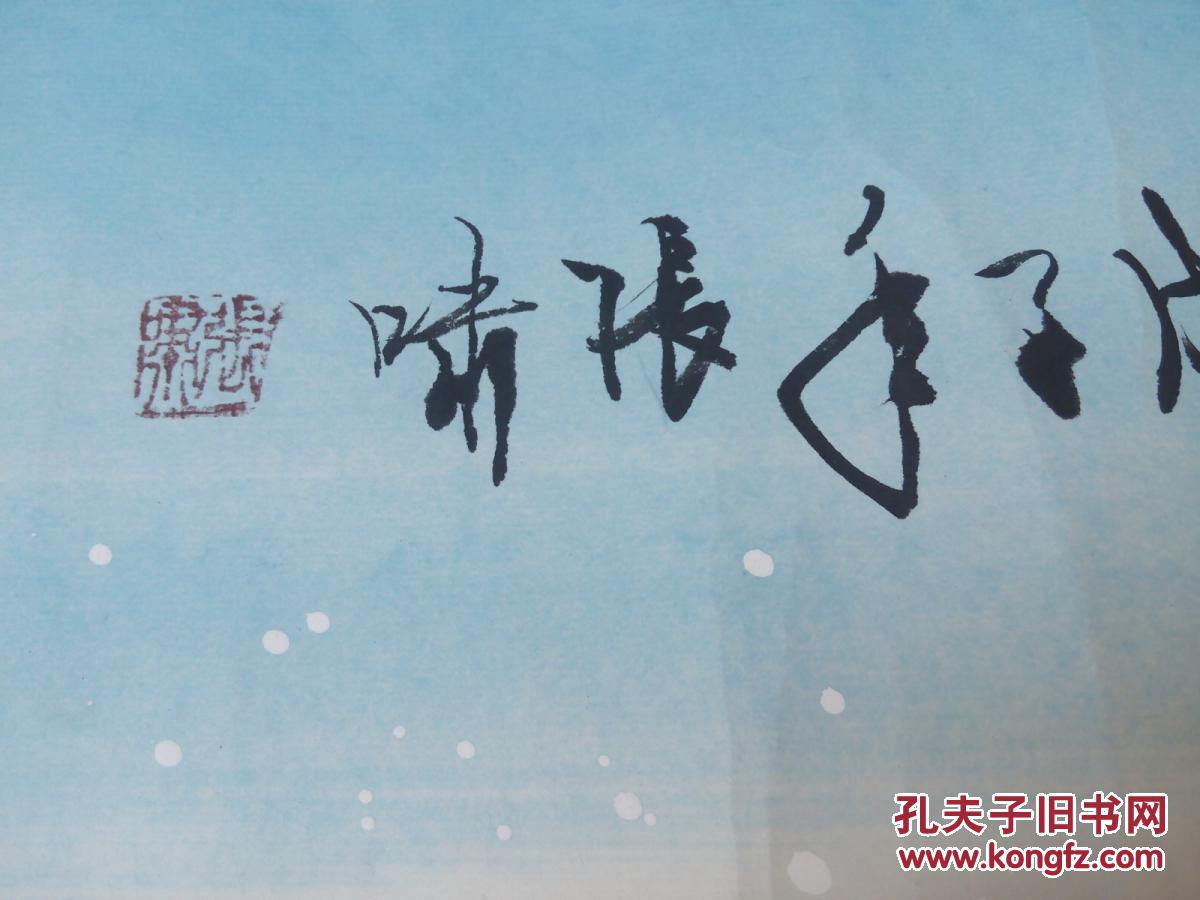 子年張嘯
孔夫子旧书网
www.kongfz.com